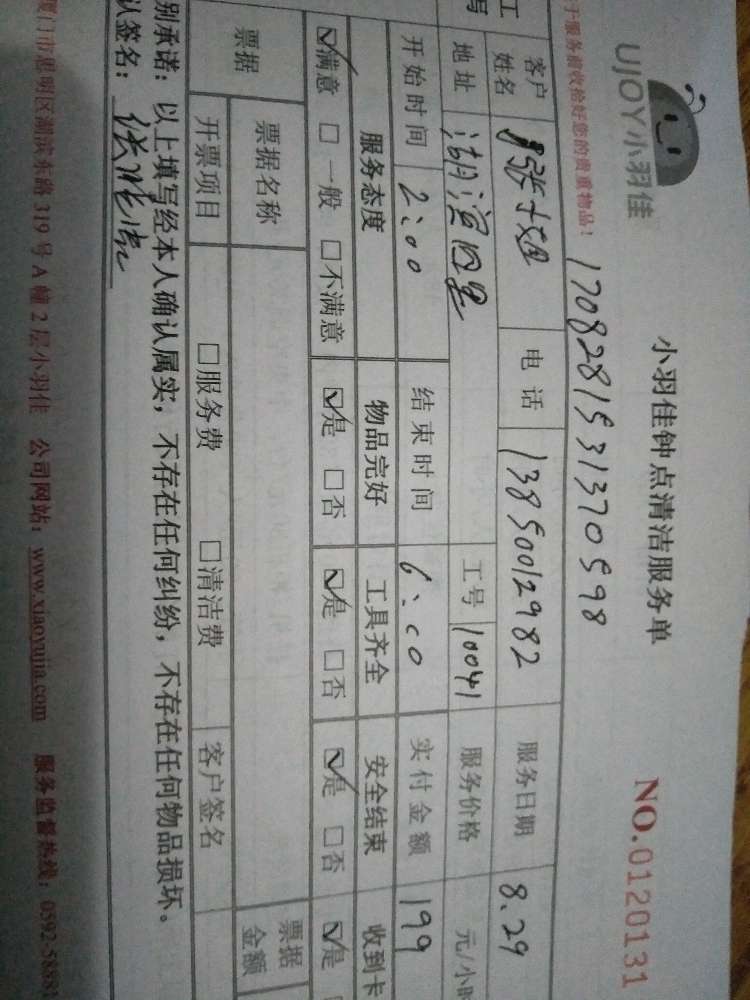 UJOY小羽佳
小羽佳钟点清洁服务单
NO.0120131
于服务前收拾好您的贵重物品！
1708281531370598
客户姓名 张小姐 电话 13850012982 服务日期 8.29
地址 湖滨四里 工号 10041 服务价格 元/小时
开始时间 2:00 结束时间 6:00 实付金额 199
服务态度 物品完好 工具齐全 安全结束 收到卡
☑满意 □一般 □不满意 ☑是 □否 ☑是 □否 ☑是 □否 ☑是
票据 票据名称 票据金额
开票项目 □服务费 □清洁费 客户签名
别承诺：以上填写经本人确认属实，不存在任何纠纷，不存在任何物品损坏。
认签名：
厦门市思明区湖滨东路319号A幢2层小羽佳 公司网站：www.xiaoyujia.com 服务监督热线：0592-5888